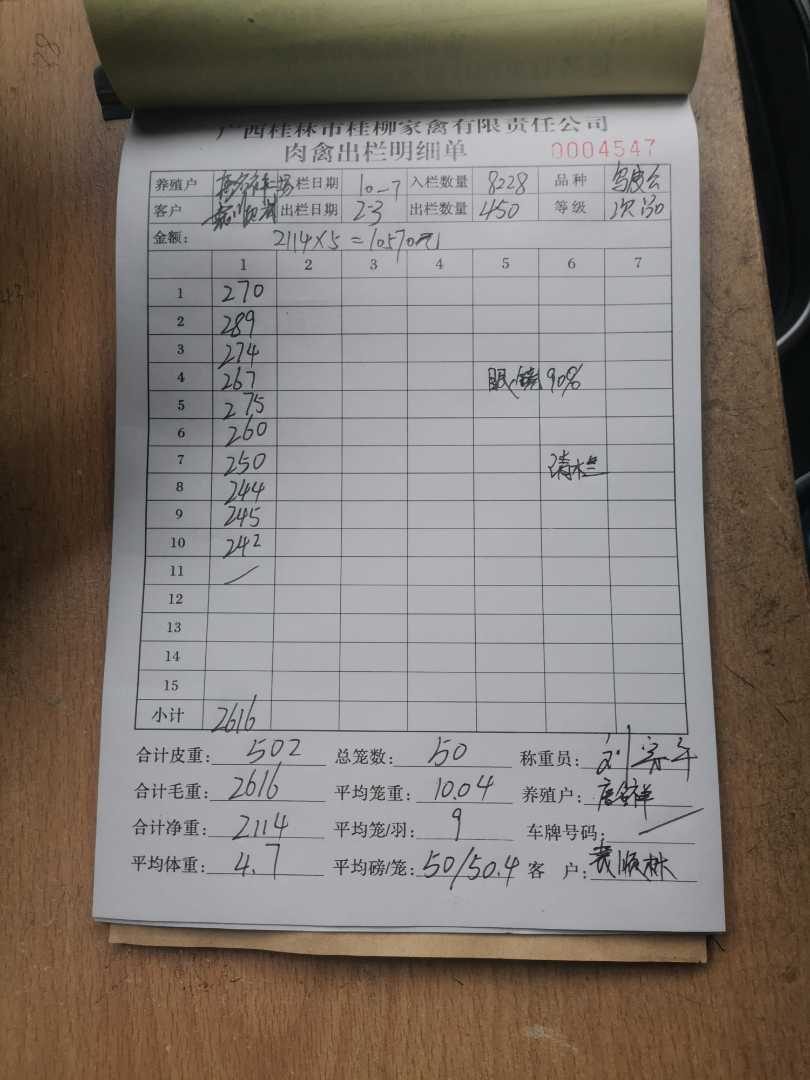 广西桂林市桂柳家禽有限责任公司
肉禽出栏明细单 0004547
养殖户 入栏日期 10-7 入栏数量 8228 品种 乌皮
客户 出栏日期 2-3 出栏数量 450 等级 次
金额: 2114×5=10570元
1 2 3 4 5 6 7
1 270
2 289
3 274
4 267 眼镜90%
5 275
6 260
7 250 清栏
8 244
9 245
10 242
11 /
12
13
14
15
小计 2616
合计皮重: 502 总笼数: 50 称重员: 刘
合计毛重: 2616 平均笼重: 10.04 养殖户:
合计净重: 2114 平均笼/羽: 9 车牌号码: /
平均体重: 4.7 平均磅/笼: 50/50.4 客 户: 顺林